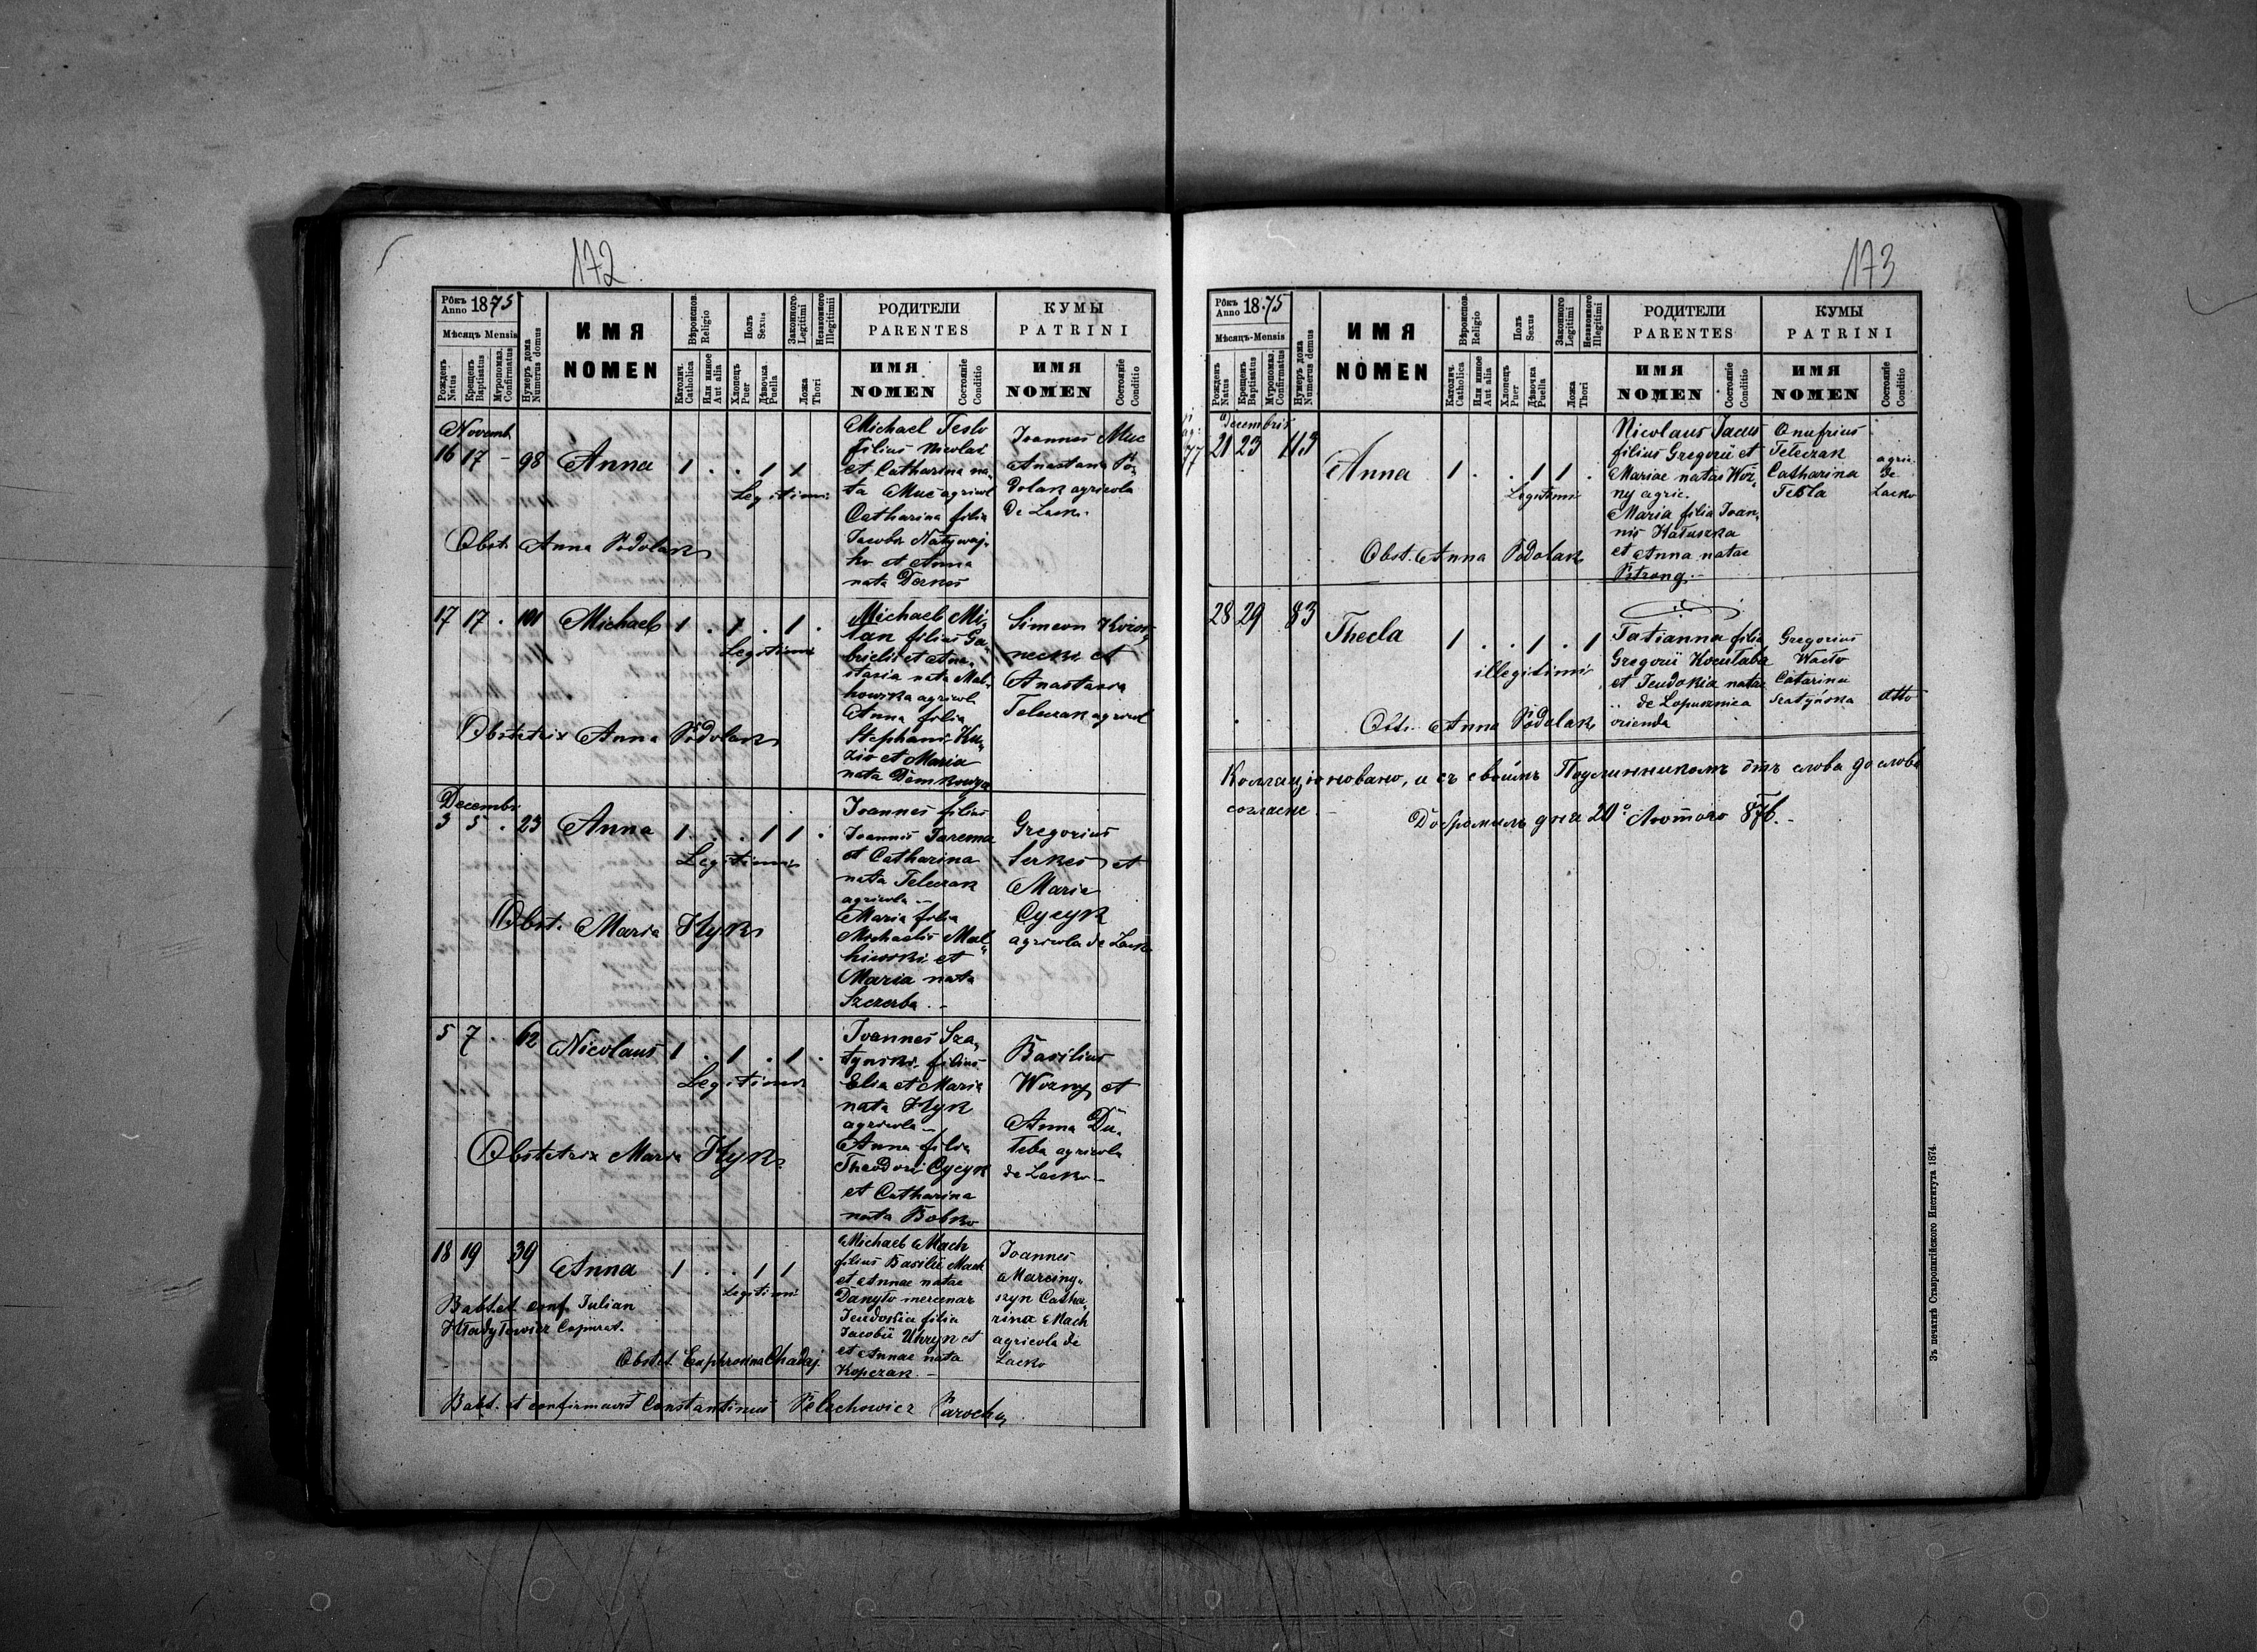 172
Рôкъ Anno 1875
Мѣсяцъ Mensis
Рожденъ Natus
Крещенъ Baptisatus
Мѵропомаз. Confirmatus
Нумеръ дома Numerus domus
ИМЯ
NOMEN
Вѣроиспов. Religio
Католич. Catholica
Или иное Aut alia
Полъ Sexus
Хлопецъ Puer
Дѣвочка Puella
Законного Legitimi
Незаконного Illegitimi
Ложа Thori
РОДИТЕЛИ
PARENTES
ИМЯ
NOMEN
Состоянiе Conditio
КУМЫ
PATRINI
ИМЯ
NOMEN
Состоянiе Conditio
Novemb.
16 17 - 98 Anna 1 . . 1 1
Legitimi
Michael Tesla
filius Nicolai
et Catharina na-
ta Muc agricol
Catharina filia
Jacobi Natywaj-
ko et Anna
nata Derkes
Joannes Muc
Anastasia Po-
dolak agricola
de Lacko.
Obst. Anna Podolak
17 17 . 101 Michael 1 . 1 . 1 .
Legitimi
Michael Mi-
lan filius Ga-
brielis et Ana-
stasia nata Mal-
howska agricol
Anna filia
Stephani Ku-
zio et Maria
nata
Simeon
et
Anastasia
Teleczak agricol
Obstetrix Anna Podolak
Decembr.
3 5 . 23 Anna 1 . . 1 1 .
Legitimi
Joannes filius
Joannis Jarema
et Catharina
nata Teleczak
agricola -
Maria filia
Michaelis Mal-
hiwski et
Maria nata
Szczerba -
Gregorius
Serkes et
Maria
Cycyk
agricola de Lacko
Obst. Maria Hyk
5 7 . 62 Nicolaus 1 . 1 . 1 .
Legitimi
Joannes Sza-
tynski filius
Elia et Maria
nata Hyk
agricola -
Anna filia
Theodori Cycyk
et Catharina
nata Bobko
Basilius
Wozny et
Anna Du-
teba agricola
de Lacko -
Obstetrix Maria Hyk
18 19 39 Anna 1 . . 1 1
Legitimi
Michael Mach
filius Basilii Mach
et Annae natae
Danyło mercenar
Jeudokia filia
Jacobii Uhryn et
et Annae nata
Kopczak -
Joannes
Marciny-
szyn Catha-
rina Mach
agricola de
Lacko
Babt. et conf. Julian
Hładyłowicz Coperat.
Obstet. Euphrosina Chadaj.
Babt. et confirmavit Constantinus Pelechowicz Paroch
173
Рôкъ Anno 1875
Мѣсяцъ-Mensis
Рожденъ Natus
Крещенъ Baptisatus
Мѵропомаз. Confirmatus
Нумеръ дома Numerus domus
ИМЯ
NOMEN
Вѣроиспов. Religio
Католич. Catholica
Или иное Aut alia
Полъ Sexus
Хлопецъ Puer
Дѣвочка Puella
Законного Legitimi
Незаконного Illegitimi
Ложа Thori
РОДИТЕЛИ
PARENTES
ИМЯ
NOMEN
Состоянiе Conditio
КУМЫ
PATRINI
ИМЯ
NOMEN
Состоянiе Conditio
Decembris
21 23 113 Anna 1 . . 1 1 .
Legitimi
Nicolaus Jacus
filius Gregorii et
Mariae natae Woz-
ny agric.
Maria filia Joan-
nis Hałuszka
et Anna natae
Pstrong.-
Onufrius
Teleczak
Catharina
Tesla
agric.
de
Lacko
Obst. Anna Podolak
28 29 83 Thecla 1 . . 1 . 1
illegitimi
Tatianna filia
Gregorii
et Jeudokia natae
de Lopusznica
orienda
Gregorius
Wacło
Catarina
Szatyńska
atto
Obst. Anna Podolak
Коллаціоновано, и съ своимъ Подлинникомъ ôтъ слова до слова
согласне. -
Добромиль дня 20º Лютого 876. -
Зъ печатнѣ Ставропигійского Института 1874.